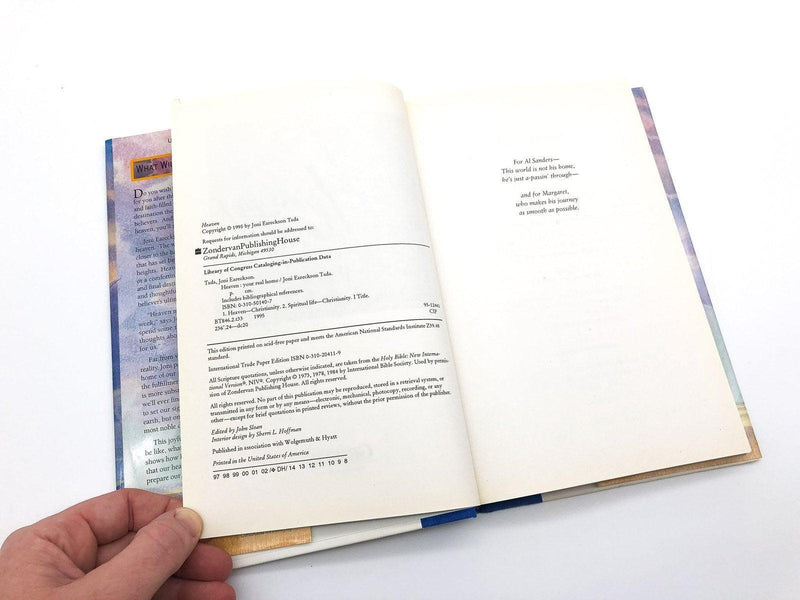 WHAT WIL
Do you wish
for you after th
and faith-filled
destination the
believers. And
heaven, you'll
Joni Eareckson
heaven. The w
closer to the h
that has set
heights. Heav
or a comforting
and final destin
and thoughtful
believer's ultim
"Heaven m
week," says J
spend some
thoughts abou
for us."
Far from
reality, Joni p
home of our
the fulfillmen
is more subst
we'll ever fin
to set our sig
earth, but on
most noble
This joyfu
be like, what
shows how
that our hea
prepare our
Heaven
Copyright © 1995 by Joni Eareckson Tada
Requests for information should be addressed to:
ZondervanPublishingHouse
Grand Rapids, Michigan 49530
Library of Congress Cataloging-in-Publication Data
Tada, Joni Eareckson.
Heaven : your real home / Joni Eareckson Tada.
p. cm.
Includes bibliographical references.
ISBN: 0-310-50140-7
1. Heaven—Christianity. 2. Spiritual life—Christianity. I Title.
BT846.2.t33 1995
236'.24—dc20 CIP
This edition printed on acid-free paper and meets the American National Standards Institute Z39.48
standard.
International Trade Paper Edition ISBN 0-310-20411-9
All Scripture quotations, unless otherwise indicated, are taken from the Holy Bible: New Interna-
tional Version®. NIV®. Copyright © 1973, 1978, 1984 by International Bible Society. Used by permi-
sion of Zondervan Publishing House. All rights reserved.
All rights reserved. No part of this publication may be reproduced, stored in a retrieval system, or
transmitted in any form or by any means—electronic, mechanical, photocopy, recording, or any
other—except for brief quotations in printed reviews, without the prior permission of the publisher.
Edited by John Sloan
Interior design by Sherri L. Hoffman
Published in association with Wolgemuth & Hyatt
Printed in the United States of America
97 98 99 00 01 02 /❖ DH/ 14 13 12 11 10 9 8
For Al Sanders—
This world is not his home,
he's just a-passin' through—
and for Margaret,
who makes his journey
as smooth as possible.